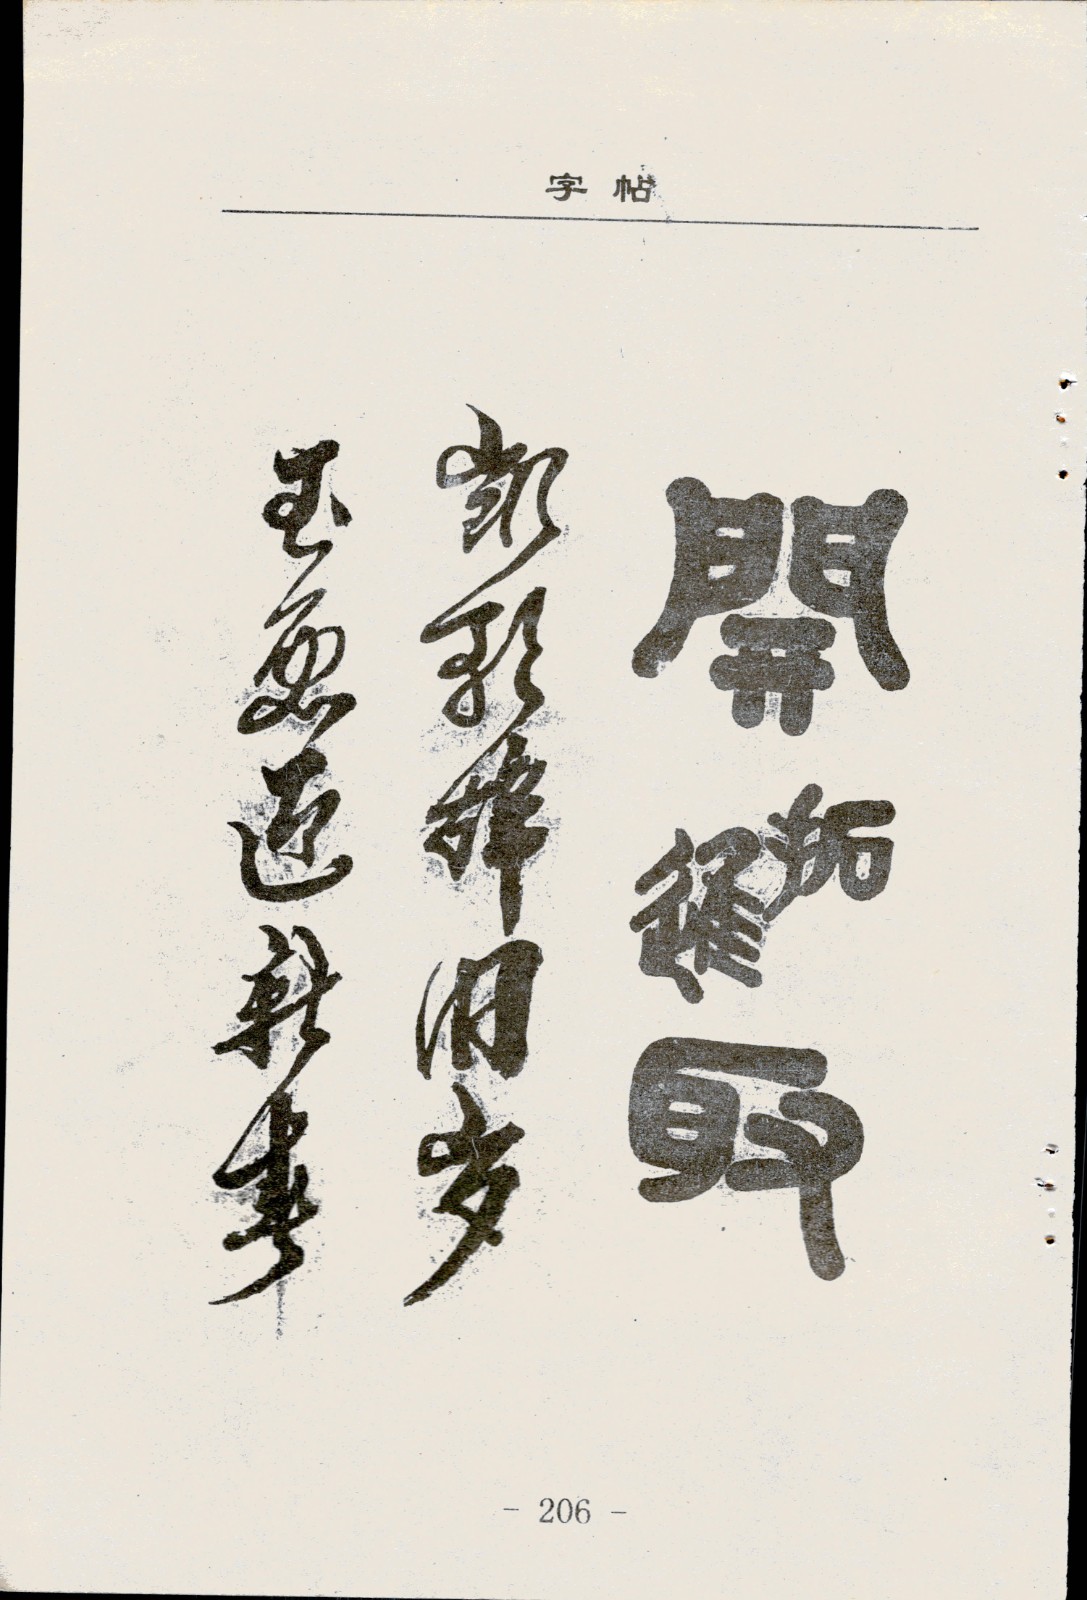 字帖
開拓進取
凯歌辞旧岁
玉兔迎新春
- 206 -